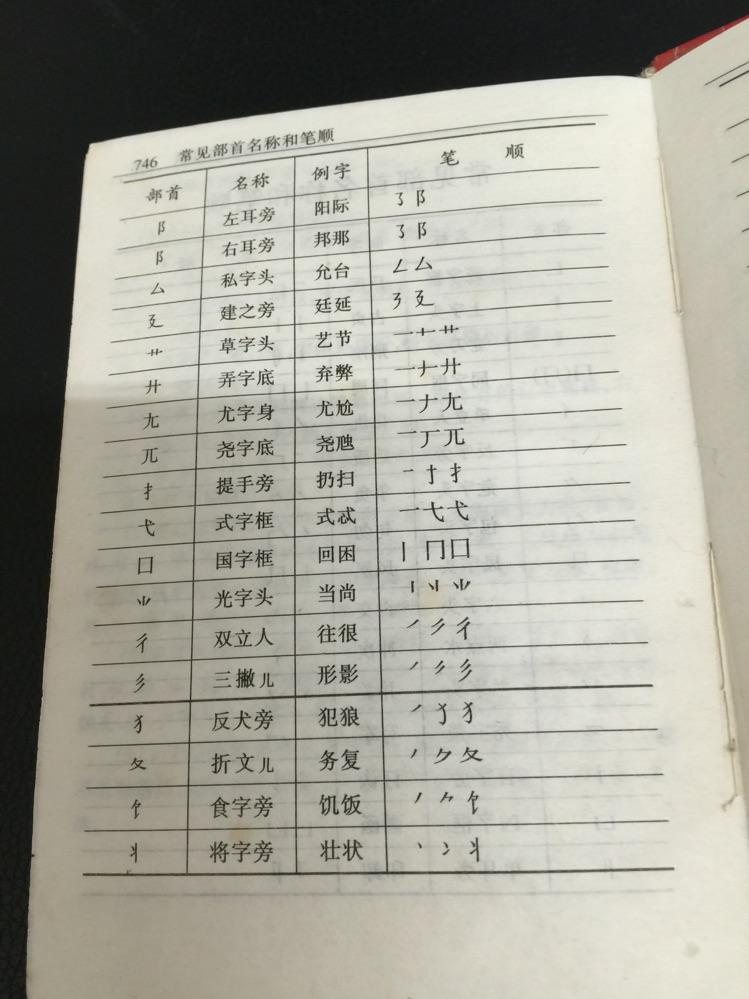 746 常见部首名称和笔顺
部首 名称 例字 笔顺
阝 左耳旁 阳际 ㇌阝
阝 右耳旁 邦那 ㇌阝
厶 私字头 允台 ㇜厶
廴 建之旁 廷延 ㇋廴
艹 草字头 艺节 一十艹
廾 弄字底 弃弊 一ナ廾
尢 尤字身 尤尬 一ナ尢
兀 尧字底 尧虺 一丁兀
扌 提手旁 扔扫 一亅扌
弋 式字框 式忒 一七弋
囗 国字框 回困 丨冂囗
⺌ 光字头 当尚 丨⺌
彳 双立人 往很 丿彳
彡 三撇儿 形影 丿彡
犭 反犬旁 犯狼 丿犭
夂 折文儿 务复 丿ク夂
饣 食字旁 饥饭 丿𠂊饣
丬 将字旁 壮状 丶冫丬